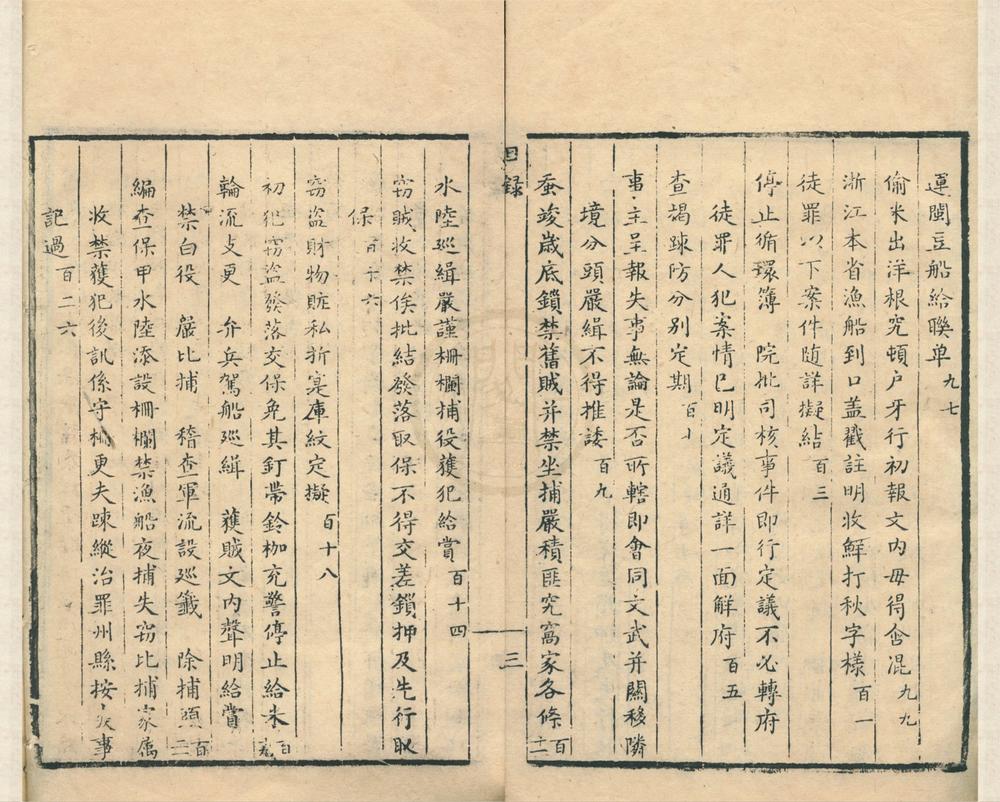 運閩豆船給聯單九七
偷米出洋根究頓户牙行初報文內毋得含混九九
浙江本省漁船到口盖戳註明收鮮打秋字樣百一
徒罪以下案件随詳擬結百三
停止循環簿　院批司核事件即行定議不必轉府
徒罪人犯案情已明定議通詳一面解府百五
查揭踈防分别定期百
事主呈報失事無論是否所轄即會同文武并關移隣
境分頭嚴緝不得推諉百九
蚕竣歲底鎖禁舊賊并禁坐捕嚴積匪究窩家各條百十二
目録
三
水陸巡緝嚴謹柵欄捕役獲犯給賞百十四
窃賊收禁俟批結發落取保不得交差鎖押及先行取
保百十六
窃盗財物賍私折寔庫紋定擬百十八
初犯窃盗發落交保免其釘帶鈴枷充警停止給本百
輪流支更　弁兵駕船巡緝　獲賊文內聲明給賞
禁白役　嚴比捕　稽查軍流設巡籤　除捕百二
編查保甲水陸添設柵欄禁漁船夜捕失窃比捕家属
收禁獲犯後訊係守柵更夫踈縱治罪州縣按事
記過百二六